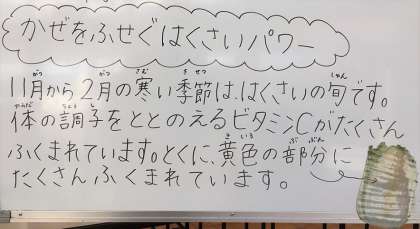 かぜをふせぐはくさいパワー
11月から2月の寒い季節は、はくさいの旬です。
体の調子をととのえるビタミンCがたくさん
ふくまれています。とくに、黄色の部分に
たくさんふくまれています。